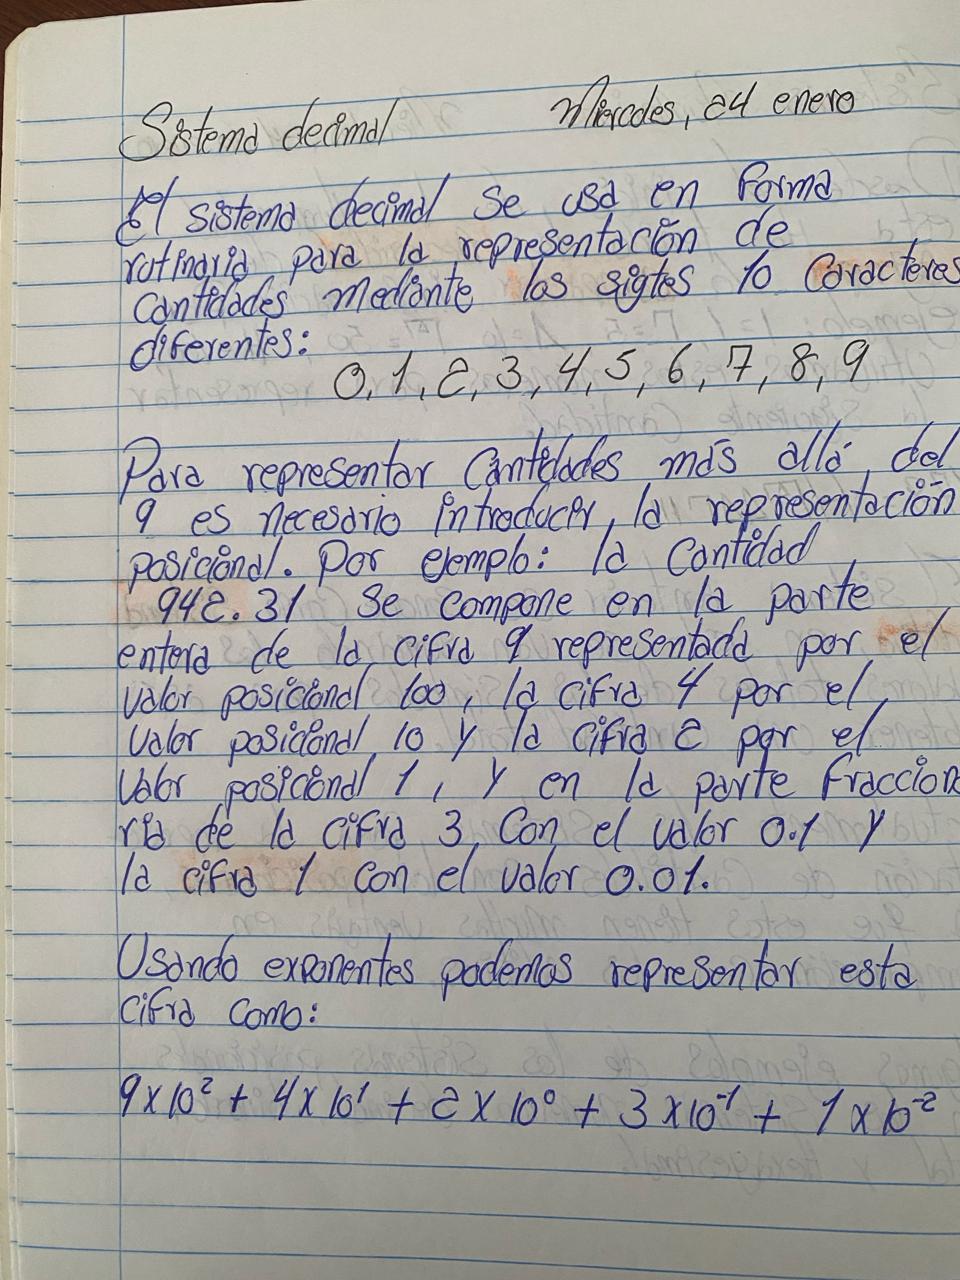 Sistema decimal Miercoles, 24 enero
El sistema decimal se usa en forma
rutinaria, para la representación de
Cantidades mediante los sigtes 10 Caracteres
diferentes:
0, 1, 2, 3, 4, 5, 6, 7, 8, 9
Para representar Cantidades más allá, del
9 es necesario introducir, la representación
posicional. Por ejemplo: la Cantidad
942.31 Se compone en la parte
entera de la cifra 9 representada por el
valor posicional 100, la cifra 4 por el,
valor posicional 10 y la cifra 2 por el
valor posicional 1, y en la parte fracciona
ria de la cifra 3, Con el valor 0.1 y
la cifra 1 con el valor 0.01.
Usando exponentes podemos representar esta
cifra como:
9 x 10² + 4 x 10¹ + 2 x 10⁰ + 3 x 10⁻¹ + 1 x 10⁻²